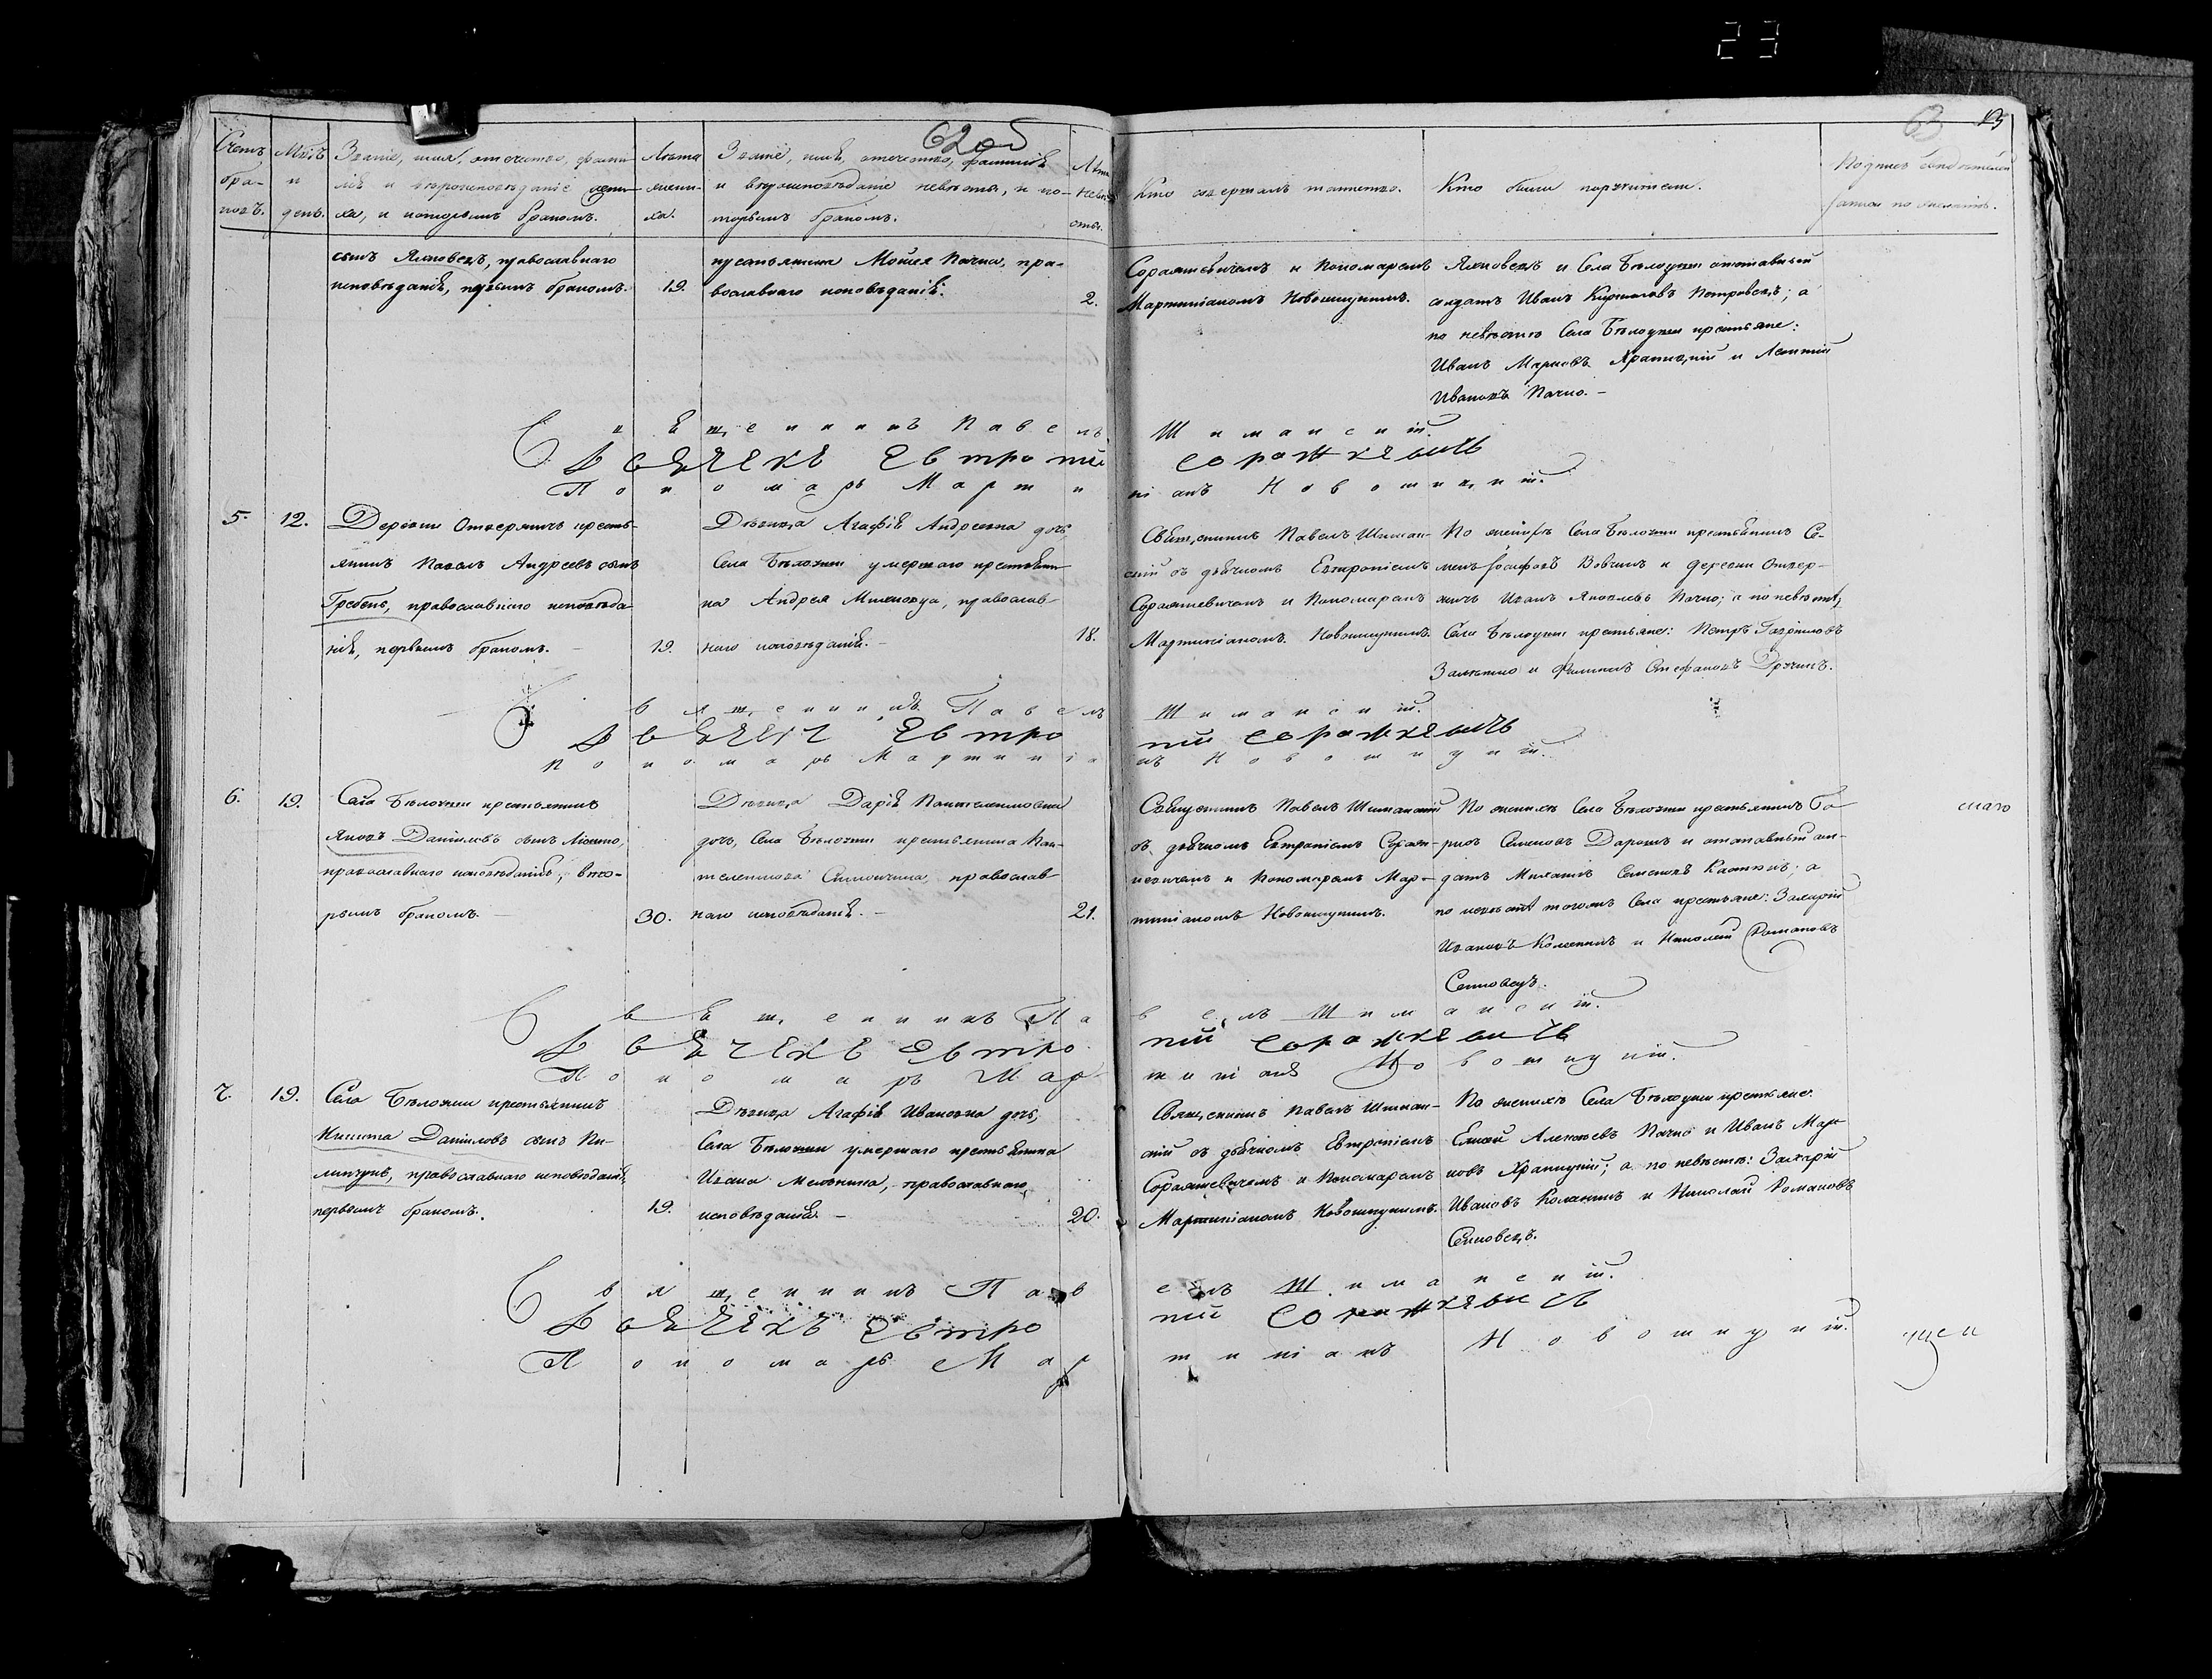 23
62 об
63
Счетъ бра-ковъ.
Мѣсѣ и день.
Званіе, имя, отчество, фами-
лія и вѣроисповѣданіе жени-
ха, и которымъ бракомъ.
Лѣта жени-ха.
Званіе, имя, отечество, фамилія
и вѣроисповѣданіе невѣсты, и ко-
торымъ бракомъ.
Лѣта невѣ-сты.
Кто совершалъ таинство.
Кто были поручители.
Подпись свидѣтелей
записи по желанію.
сынъ Яхновецъ, православнаго
исповѣданія, первымъ бракомъ.
19.
крестьянина Мойсея Пачка, пра-
вославнаго исповѣданія.
2.
и Пономаремъ
Мартиніаномъ Новошицкимъ.
Яхновецъ и Села Бѣлоуши отставный
солдатъ Иванъ Кириловъ Петровецъ; а
по невѣстѣ Села Бѣлоуши крестьяне:
Иванъ Марковъ Храпицкій и Леонтій
Ивановъ Пачко. –
Священникъ Павелъ Шиманскій.
Евтропій
Пономарь Мартиніанъ Новошицкій.
5.
12.
Деревни Отвержичъ кресть-
янинъ Павелъ Андреевъ сынъ
Гребень, православнаго исповѣда-
нія, первымъ бракомъ. –
19.
Дѣвица Агафія Андреевна дочь,
Села Бѣлоуши умершаго крестьяни-
на Андрея православ-
наго исповѣданія. –
18.
Священникъ Павелъ Шиман-
скій съ дьячкомъ Евтропіемъ
и Пономаремъ
Мартиніаномъ Новошицкимъ.
По женихѣ Села Бѣлоуши крестьянинъ Се-
менъ Іосифовъ Вовчикъ и деревни Отвер-
жичъ Иванъ Яковлевъ Пачко; а по невѣстѣ,
Села Бѣлоуши крестьяне: Петръ Гавриловъ
и Филиппъ Стефановъ
Священникъ Павелъ Шиманскій.
Евтропій
Пономарь Мартиніанъ Новошицкій.
6.
19.
Села Бѣлоуши крестьянинъ
Яковъ Даниловъ сынъ
православнаго исповѣданія, вто-
рымъ бракомъ. –
30.
Дѣвица Дарія Пантелеимовна
дочь, Села Бѣлоуши крестьянина Пан-
телеимона православ-
наго исповѣданія. –
21.
Священникъ Павелъ Шиманскій
съ дьячкомъ Евтропіемъ
и Пономаремъ Мар-
тиніаномъ Новошицкимъ.
По женихѣ Села Бѣлоуши крестьянинъ
Семеновъ и отставный сол-
датъ Михаилъ Семеновъ а
по невѣстѣ тогожъ Села крестьяне: Захарій
Ивановъ и Николай Романовъ
снаго
Священникъ Павелъ Шиманскій.
Евтропій
Пономарь Мартиніанъ Новошицкій.
7.
19.
Села Бѣлоуши крестьянинъ
Никита Даниловъ сынъ
православнаго исповѣданія,
первымъ бракомъ.
19.
Дѣвица Агафія Ивановна дочь,
Села Бѣлоуши умершаго крестьянина
Ивана православнаго
исповѣданія. –
20.
Священникъ Павелъ Шиман-
скій съ дьячкомъ Евтропіемъ
и Пономаремъ
Мартиніаномъ Новошицкимъ.
По женихѣ Села Бѣлоуши крестьяне:
Алексѣевъ Пачко и Иванъ Мар-
ковъ Храпицкій; а по невѣстѣ: Захарій
Ивановъ и Николай Романовъ
Священникъ Павелъ Шиманскій.
Евтропій
Пономарь Мартиніанъ Новошицкій.